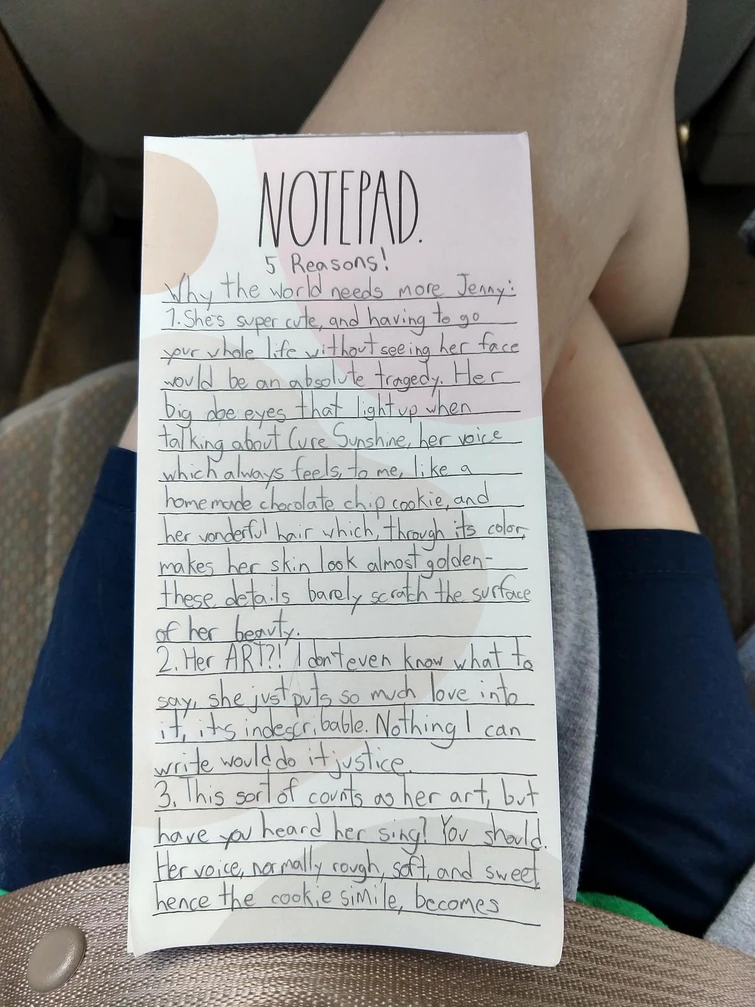 NOTEPAD.
5 Reasons!
Why the world needs more Jenny:
1. She's super cute, and having to go
your whole life without seeing her face
would be an absolute tragedy. Her
big doe eyes that light up when
talking about Cure Sunshine, her voice
which always feels, to me, like a
homemade chocolate chip cookie, and
her wonderful hair which, through its color,
makes her skin look almost golden-
these details barely scratch the surface
of her beauty.
2. Her ART?! I don't even know what to
say, she just puts so much love into
it, it's indescribable. Nothing I can
write would do it justice.
3. This sort of counts as her art, but
have you heard her sing? You should.
Her voice, normally rough, soft, and sweet,
hence the cookie simile, becomes